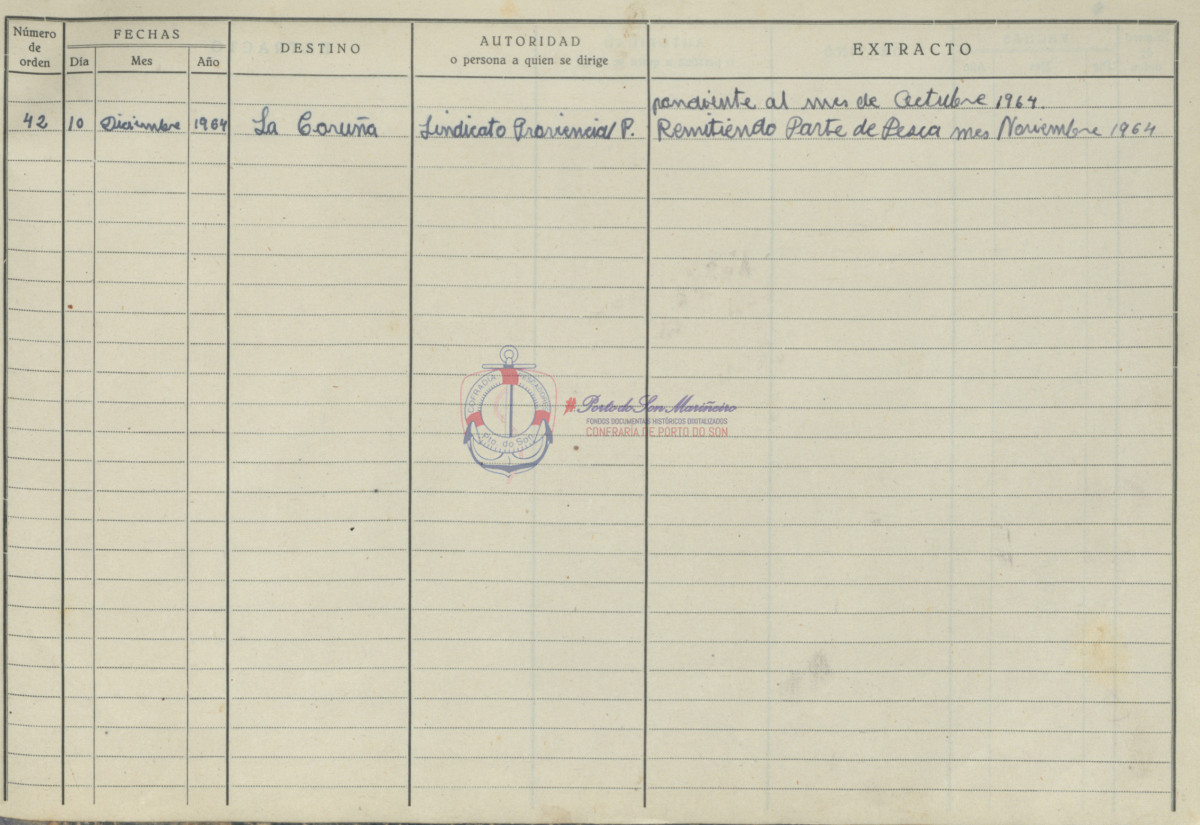 Número de orden
FECHAS
Día
Mes
Año
DESTINO
AUTORIDAD
o persona a quien se dirige
EXTRACTO
pondiente al mes de Octubre 1964.
42 10 Diciembre 1964 La Coruña Sindicato Provincial P. Remitiendo Parte de Pesca mes Noviembre 1964
COFRADIA PESCADORES
Pto. do Son
# Porto do Son Mariñeiro
FONDOS DOCUMENTAIS HISTÓRICOS DIXITALIZADOS
CONFRARÍA DE PORTO DO SON